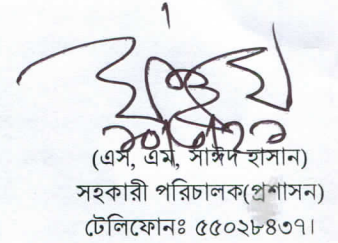 (এস, এম, সাঈদ হাসান)
সহকারী পরিচালক(প্রশাসন)
টেলিফোনঃ ৫৫০২৮৪৩৭।